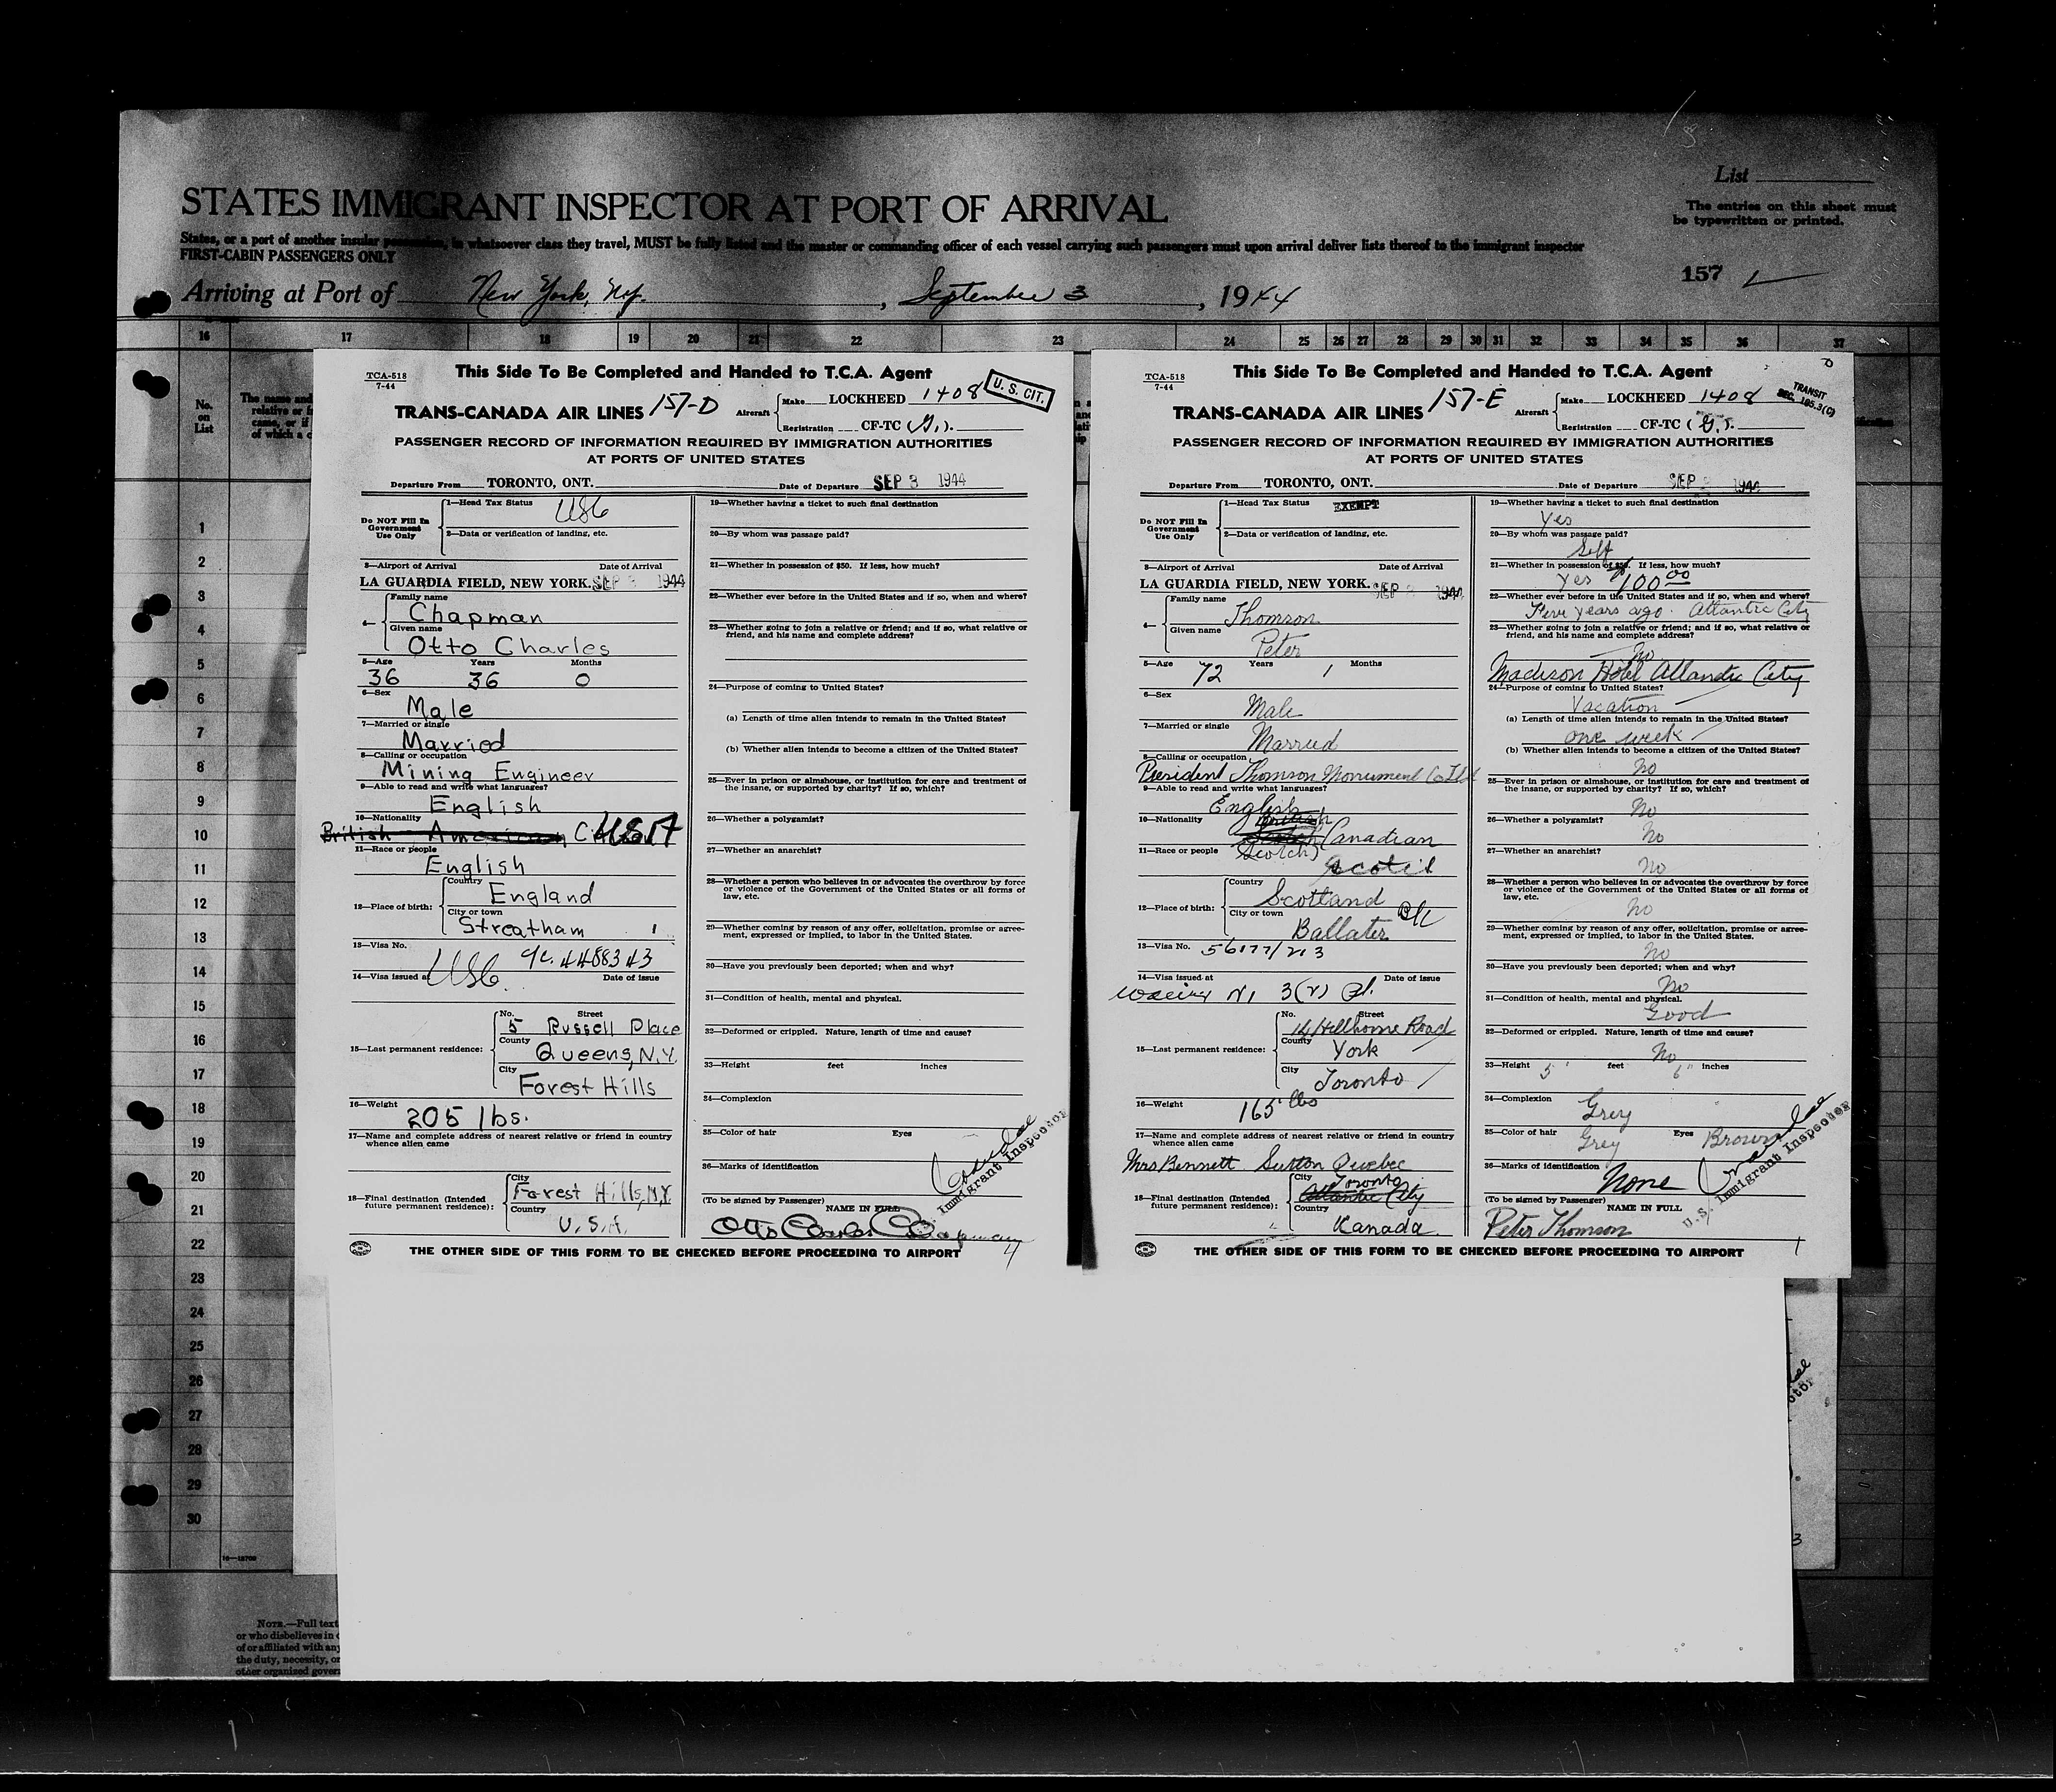 List
STATES IMMIGRANT INSPECTOR AT PORT OF ARRIVAL
The entries on this sheet must
be typewritten or printed.
States, or a port of another insular possession, in whatsoever class they travel, MUST be fully listed and the master or commanding officer of each vessel carrying such passengers must upon arrival deliver lists thereof to the immigrant inspector
FIRST-CABIN PASSENGERS ONLY
157
Arriving at Port of New York, N.Y., September 3, 1944
16 17 18 19 20 21 22 23 24 25 26 27 28 29 30 31 32 33 34 35 36 37
No.
on
List
1
2
3
4
5
6
7
8
9
10
11
12
13
14
15
16
17
18
19
20
21
22
23
24
25
26
27
28
29
30
TCA-518
7-44
This Side To Be Completed and Handed to T.C.A. Agent
U. S. CIT.
TRANS-CANADA AIR LINES 157-D
Aircraft
Make LOCKHEED 1408
Registration CF-TC (G.).
PASSENGER RECORD OF INFORMATION REQUIRED BY IMMIGRATION AUTHORITIES
AT PORTS OF UNITED STATES
Departure From TORONTO, ONT. Date of Departure SEP 3 1944
Do NOT Fill In
Government
Use Only
1—Head Tax Status USC
2—Data or verification of landing, etc.
3—Airport of Arrival Date of Arrival
LA GUARDIA FIELD, NEW YORK. SEP 3 1944
4—
Family name
Chapman
Given name
Otto Charles
5—Age Years Months
36 36 0
6—Sex
Male
7—Married or single
Married
8—Calling or occupation
Mining Engineer
9—Able to read and write what languages?
English
10—Nationality
British American USA
11—Race or people
English
12—Place of birth:
Country
England
City or town
Streatham
13—Visa No. 4488343
14—Visa issued at USC. Date of issue
15—Last permanent residence:
No. Street
5 Russell Place
County
Queens, N.Y.
City
Forest Hills
16—Weight
205 lbs.
17—Name and complete address of nearest relative or friend in country
whence alien came
18—Final destination (Intended
future permanent residence):
City
Forest Hills, N.Y.
Country
U.S.A.
19—Whether having a ticket to such final destination
20—By whom was passage paid?
21—Whether in possession of $50. If less, how much?
22—Whether ever before in the United States and if so, when and where?
23—Whether going to join a relative or friend; and if so, what relative or
friend, and his name and complete address?
24—Purpose of coming to United States?
(a) Length of time alien intends to remain in the United States?
(b) Whether alien intends to become a citizen of the United States?
25—Ever in prison or almshouse, or institution for care and treatment of
the insane, or supported by charity? If so, which?
26—Whether a polygamist?
27—Whether an anarchist?
28—Whether a person who believes in or advocates the overthrow by force
or violence of the Government of the United States or all forms of
law, etc.
29—Whether coming by reason of any offer, solicitation, promise or agree-
ment, expressed or implied, to labor in the United States.
30—Have you previously been deported; when and why?
31—Condition of health, mental and physical.
32—Deformed or crippled. Nature, length of time and cause?
33—Height feet inches
34—Complexion
35—Color of hair Eyes
36—Marks of identification
Immigrant Inspector
(To be signed by Passenger)
NAME IN FULL
Otto Charles Chapman
THE OTHER SIDE OF THIS FORM TO BE CHECKED BEFORE PROCEEDING TO AIRPORT
TCA-518
7-44
This Side To Be Completed and Handed to T.C.A. Agent
TRANSIT
SEC. 195.3(C)
TRANS-CANADA AIR LINES 157-E
Aircraft
Make LOCKHEED 1408
Registration CF-TC (G.).
PASSENGER RECORD OF INFORMATION REQUIRED BY IMMIGRATION AUTHORITIES
AT PORTS OF UNITED STATES
Departure From TORONTO, ONT. Date of Departure SEP 3 1944
Do NOT Fill In
Government
Use Only
1—Head Tax Status EXEMPT
2—Data or verification of landing, etc.
3—Airport of Arrival Date of Arrival
LA GUARDIA FIELD, NEW YORK. SEP 3 1944
4—
Family name
Thomson
Given name
Peter
5—Age 72 Years 1 Months
6—Sex
Male
7—Married or single
Married
8—Calling or occupation
President Thomson Monument Co Ltd
9—Able to read and write what languages?
English
10—Nationality
Canadian
11—Race or people
Scotch
12—Place of birth:
Country
Scotland
City or town
Ballater
13—Visa No. 56177/213
14—Visa issued at Date of issue
3(2)
15—Last permanent residence:
No. Street
14 Hillhome Road
County
York
City
Toronto
16—Weight
165 lbs
17—Name and complete address of nearest relative or friend in country
whence alien came
Mrs Bennett Sutton Quebec
18—Final destination (Intended
future permanent residence):
City
Toronto
Atlantic City
Country
Kanada
19—Whether having a ticket to such final destination
Yes
20—By whom was passage paid?
Self
21—Whether in possession of $50. If less, how much?
Yes $100.00
22—Whether ever before in the United States and if so, when and where?
Five years ago. Atlantic City
23—Whether going to join a relative or friend; and if so, what relative or
friend, and his name and complete address?
No
Madison Hotel Atlantic City
24—Purpose of coming to United States?
Vacation
(a) Length of time alien intends to remain in the United States?
one week
(b) Whether alien intends to become a citizen of the United States?
No
25—Ever in prison or almshouse, or institution for care and treatment of
the insane, or supported by charity? If so, which?
No
26—Whether a polygamist?
No
27—Whether an anarchist?
No
28—Whether a person who believes in or advocates the overthrow by force
or violence of the Government of the United States or all forms of
law, etc.
No
29—Whether coming by reason of any offer, solicitation, promise or agree-
ment, expressed or implied, to labor in the United States.
No
30—Have you previously been deported; when and why?
No
31—Condition of health, mental and physical.
Good
32—Deformed or crippled. Nature, length of time and cause?
No
33—Height 5' feet 6" inches
34—Complexion
Grey
35—Color of hair Grey Eyes Brown
36—Marks of identification
None
U. S. Immigrant Inspector
(To be signed by Passenger)
NAME IN FULL
Peter Thomson
THE OTHER SIDE OF THIS FORM TO BE CHECKED BEFORE PROCEEDING TO AIRPORT
NOTE.—Full text
or who disbelieves in
of or affiliated with any
the duty, necessity, or
other organized